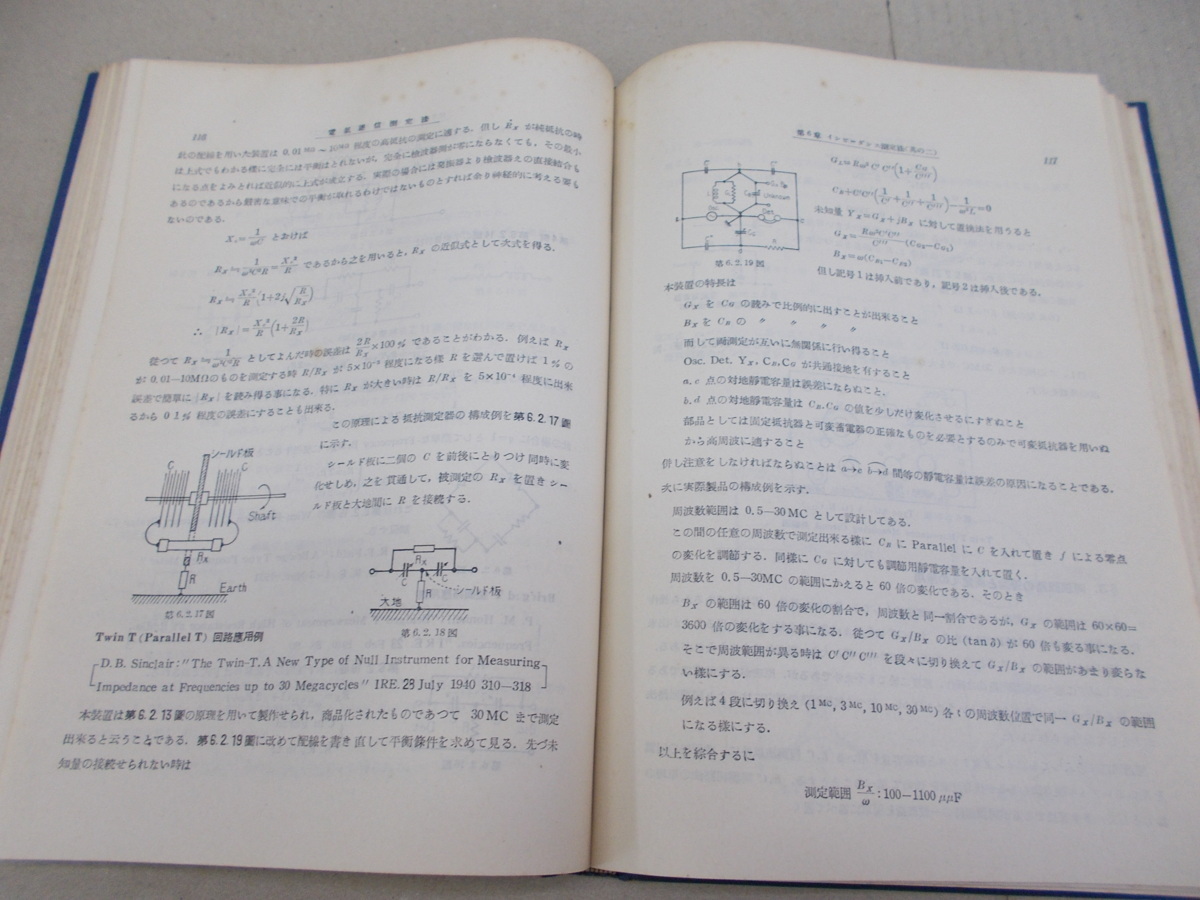 116
電気通信測定論
此の配線を用いた装置は 0.01MΩ~10MΩ 程度の高抵抗の測定に適する. 但し Ṙx が純抵抗の時
は上式でもわかる様に完全には平衡はとれないが, 完全に検波器側が零にならなくても, その最小
になる点をよみとれば近似的に上式が成立する. 実際の場合には発振器より検波器えの直接結合も
あるのであるから厳密な意味での平衡が取れるわけではないものとすれば余り神経的に考える要も
ないのである.
Xc=1/ωC とおけば
Rx≒1/ω²C²R=Xc²/R であるから之を用いると, Rx の近似式として次式を得る.
Rx≒Xc²/R(1+2j√(R/Rx))
∴ |Rx|=Xc²/R(1+2R/Rx)
従つて Rx≒1/ω²C²R としてよんだ時の誤差は 2R/Rx×100% であることがわかる. 例えば Rx
が 0.01—10MΩのものを測定する時 R/Rx が 5×10⁻³ 程度になる様 R を選んで置けば 1% の
誤差で簡単に |Rx| を読み得る事になる. 特に Rx が大きい時は R/Rx を 5×10⁻⁴ 程度に出来
るから 0.1% 程度の誤差にすることも出来る.
この原理による抵抗測定器の構成例を第6.2.17圖
に示す.
シールド板に二個の C を前後にとりつけ同時に変
化せしめ, 之を貫通して, 被測定の Rx を置きシー
ルド板と大地間に R を接続する.
シールド板
C
C
Shaft
Rx
R
Earth
第6.2.17図
Rx
C
C
R
シールド板
大地
第6.2.18図
Twin T (Parallel T) 回路應用例
D.B. Sinclair: "The Twin-T. A New Type of Null Instrument for Measuring
Impedance at Frequencies up to 30 Megacycles" IRE. 28 July 1940 310—318
本装置は第6.2.13圖の原理を用いて製作せられ, 商品化されたものであつて 30MC まで測定
出来ると云うことである. 第6.2.19圖に改めて配線を書き直して平衡條件を求めて見る. 先づ未
知量の接続せられない時は
117
Osc.
Unknown
第6.2.19図
GL=Rω²C′C″(1+CG/C‴)
CB+C′C″(1/C′+1/C″+1/C‴)−1/ω²L=0
未知量 Yx=Gx+jBx に対して置換法を用うると
Gx=Rω²C′C″/C‴(CG2−CG1)
Bx=ω(CB1−CB2)
但し記号1は挿入前であり, 記号2は挿入後である.
本装置の特長は
Gx を CG の読みで比例的に出すことが出来ること
Bx を CB の 〃 〃 〃 〃
而して両測定が互いに無関係に行い得ること
Osc. Det. Yx, CB, CG が共通接地を有すること
a.c 点の対地靜電容量は誤差にならぬこと.
b.d 点の対地靜電容量は CB, CG の値を少しだけ変化させるにすぎぬこと
部品としては固定抵抗器と可変蓄電器の正確なものを必要とするのみで可変抵抗器を用いぬ
から高周波に適すること
併し注意をしなければならぬことは a→c b→d 間等の靜電容量は誤差の原因になることである.
次に実際製品の構成例を示す.
周波数範囲は 0.5—30MC として設計してある.
この間の任意の周波数で測定出来る樣に CB に Parallel に C を入れて置き f による零点
の変化を調節する. 同様に CG に対しても調節用靜電容量を入れて置く.
周波数を 0.5—30MC の範囲にかえると 60 倍の変化である. そのとき
Bx の範囲は 60 倍の変化の割合で, 周波数と同一割合であるが, Gx の範囲は 60×60=
3600 倍の変化をする事になる. 從つて Gx/Bx の比 (tan δ) が 60 倍も変る事になる.
そこで周波範囲が異る時は C′ C″ C‴ を段々に切り換えて Gx/Bx の範囲があまり変らな
い樣にする.
例えば4段に切り換え (1MC, 3MC, 10MC, 30MC) 各々の周波数位置で同一 Gx/Bx の範囲
になる樣にする.
以上を綜合するに
測定範囲 Bx/ω : 100—1100 μμF